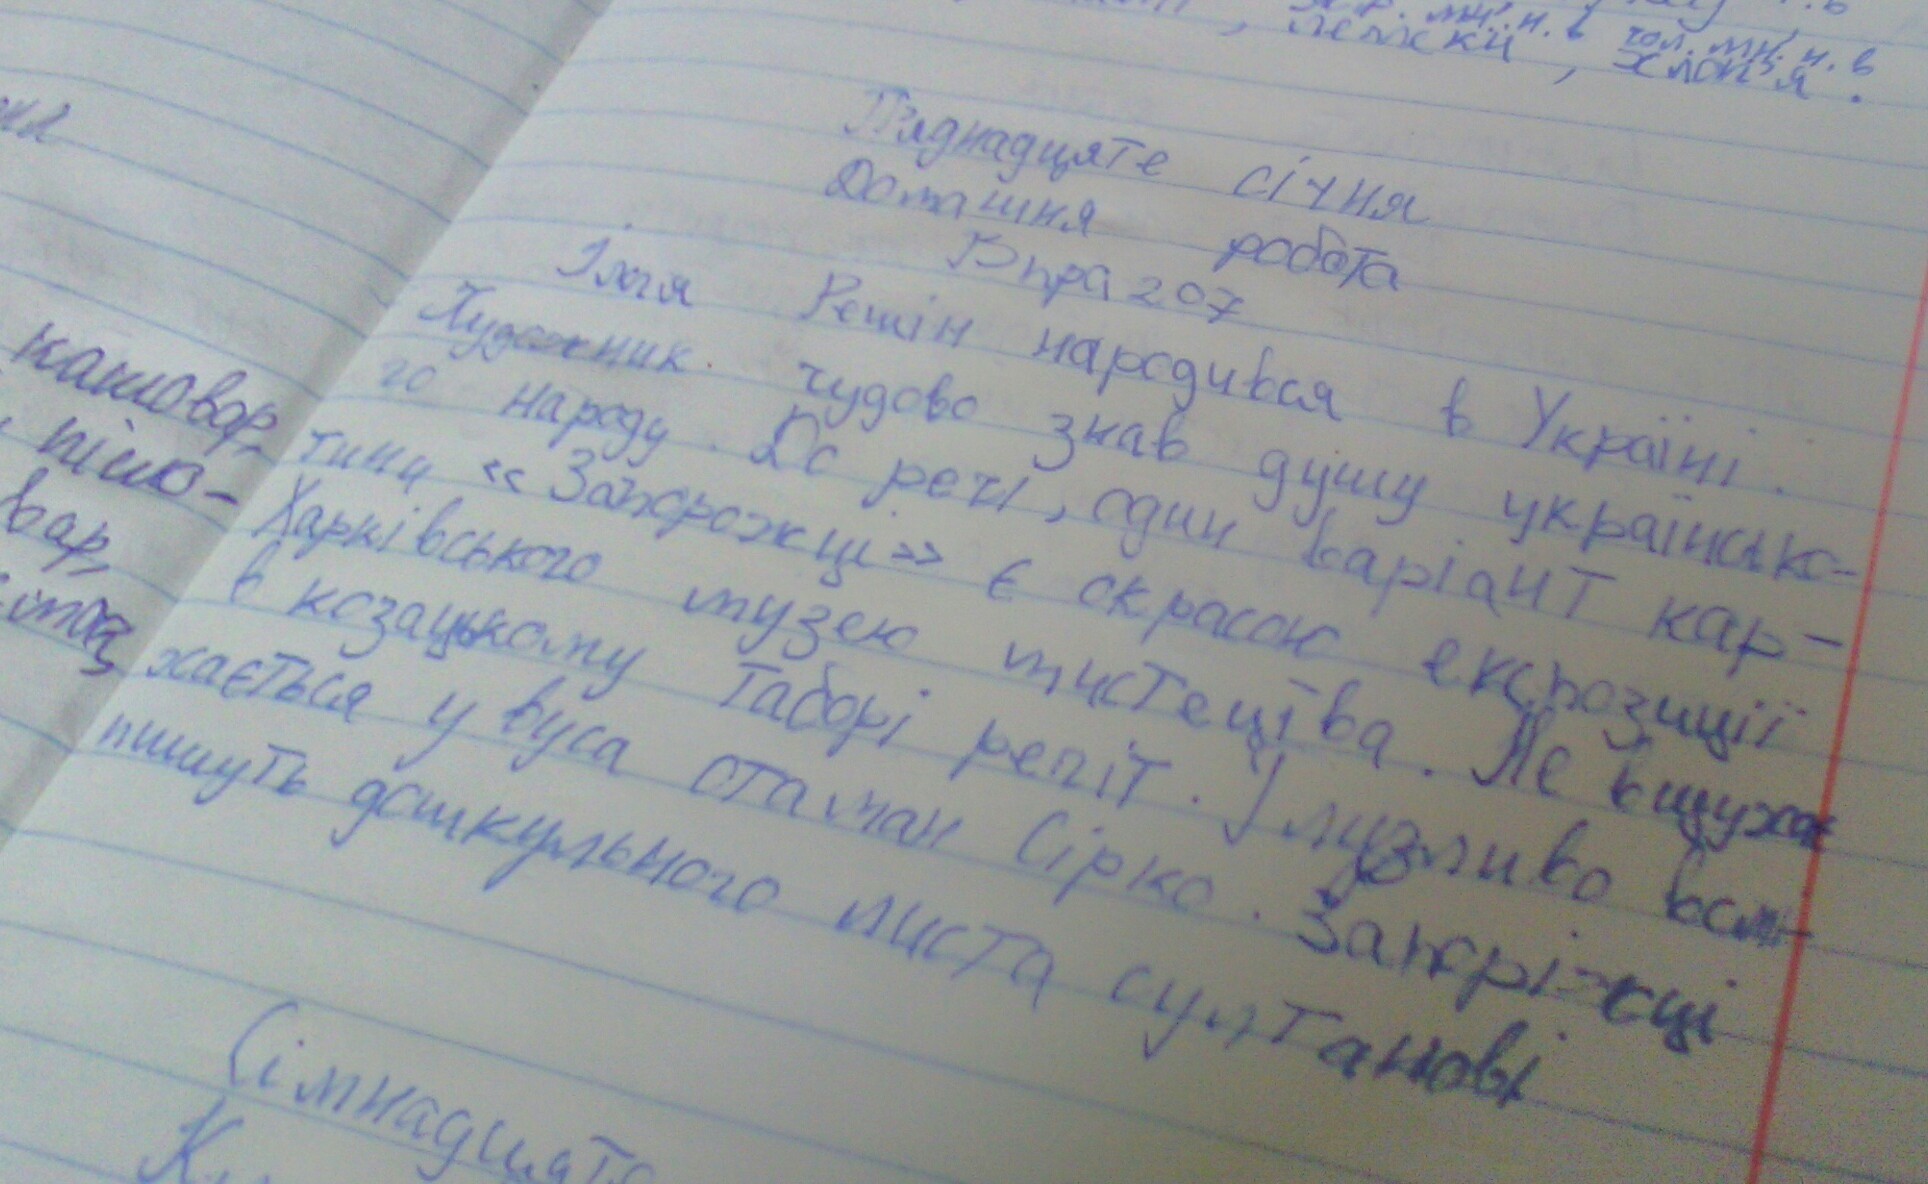 мн. н. в чол. мн. н. в
, пе , хлоп'я .
П'яднадцяте січня
Домашня робота
Впра 207
Ілля Рєпін народився в Україні.
Художник чудово знав душу українсько-
го народу. До речі, один варіант кар-
тини «Запорожці» є окрасою експозиції
Харківського музею мистецтва. Не вщуха
в козацькому таборі регіт. І глузливо всмі-
хається у вуса отаман Сірко. Запоріжці
пишуть дошкульного листа султанові
кашовар,
піло-
вар,
Сімнадцяте